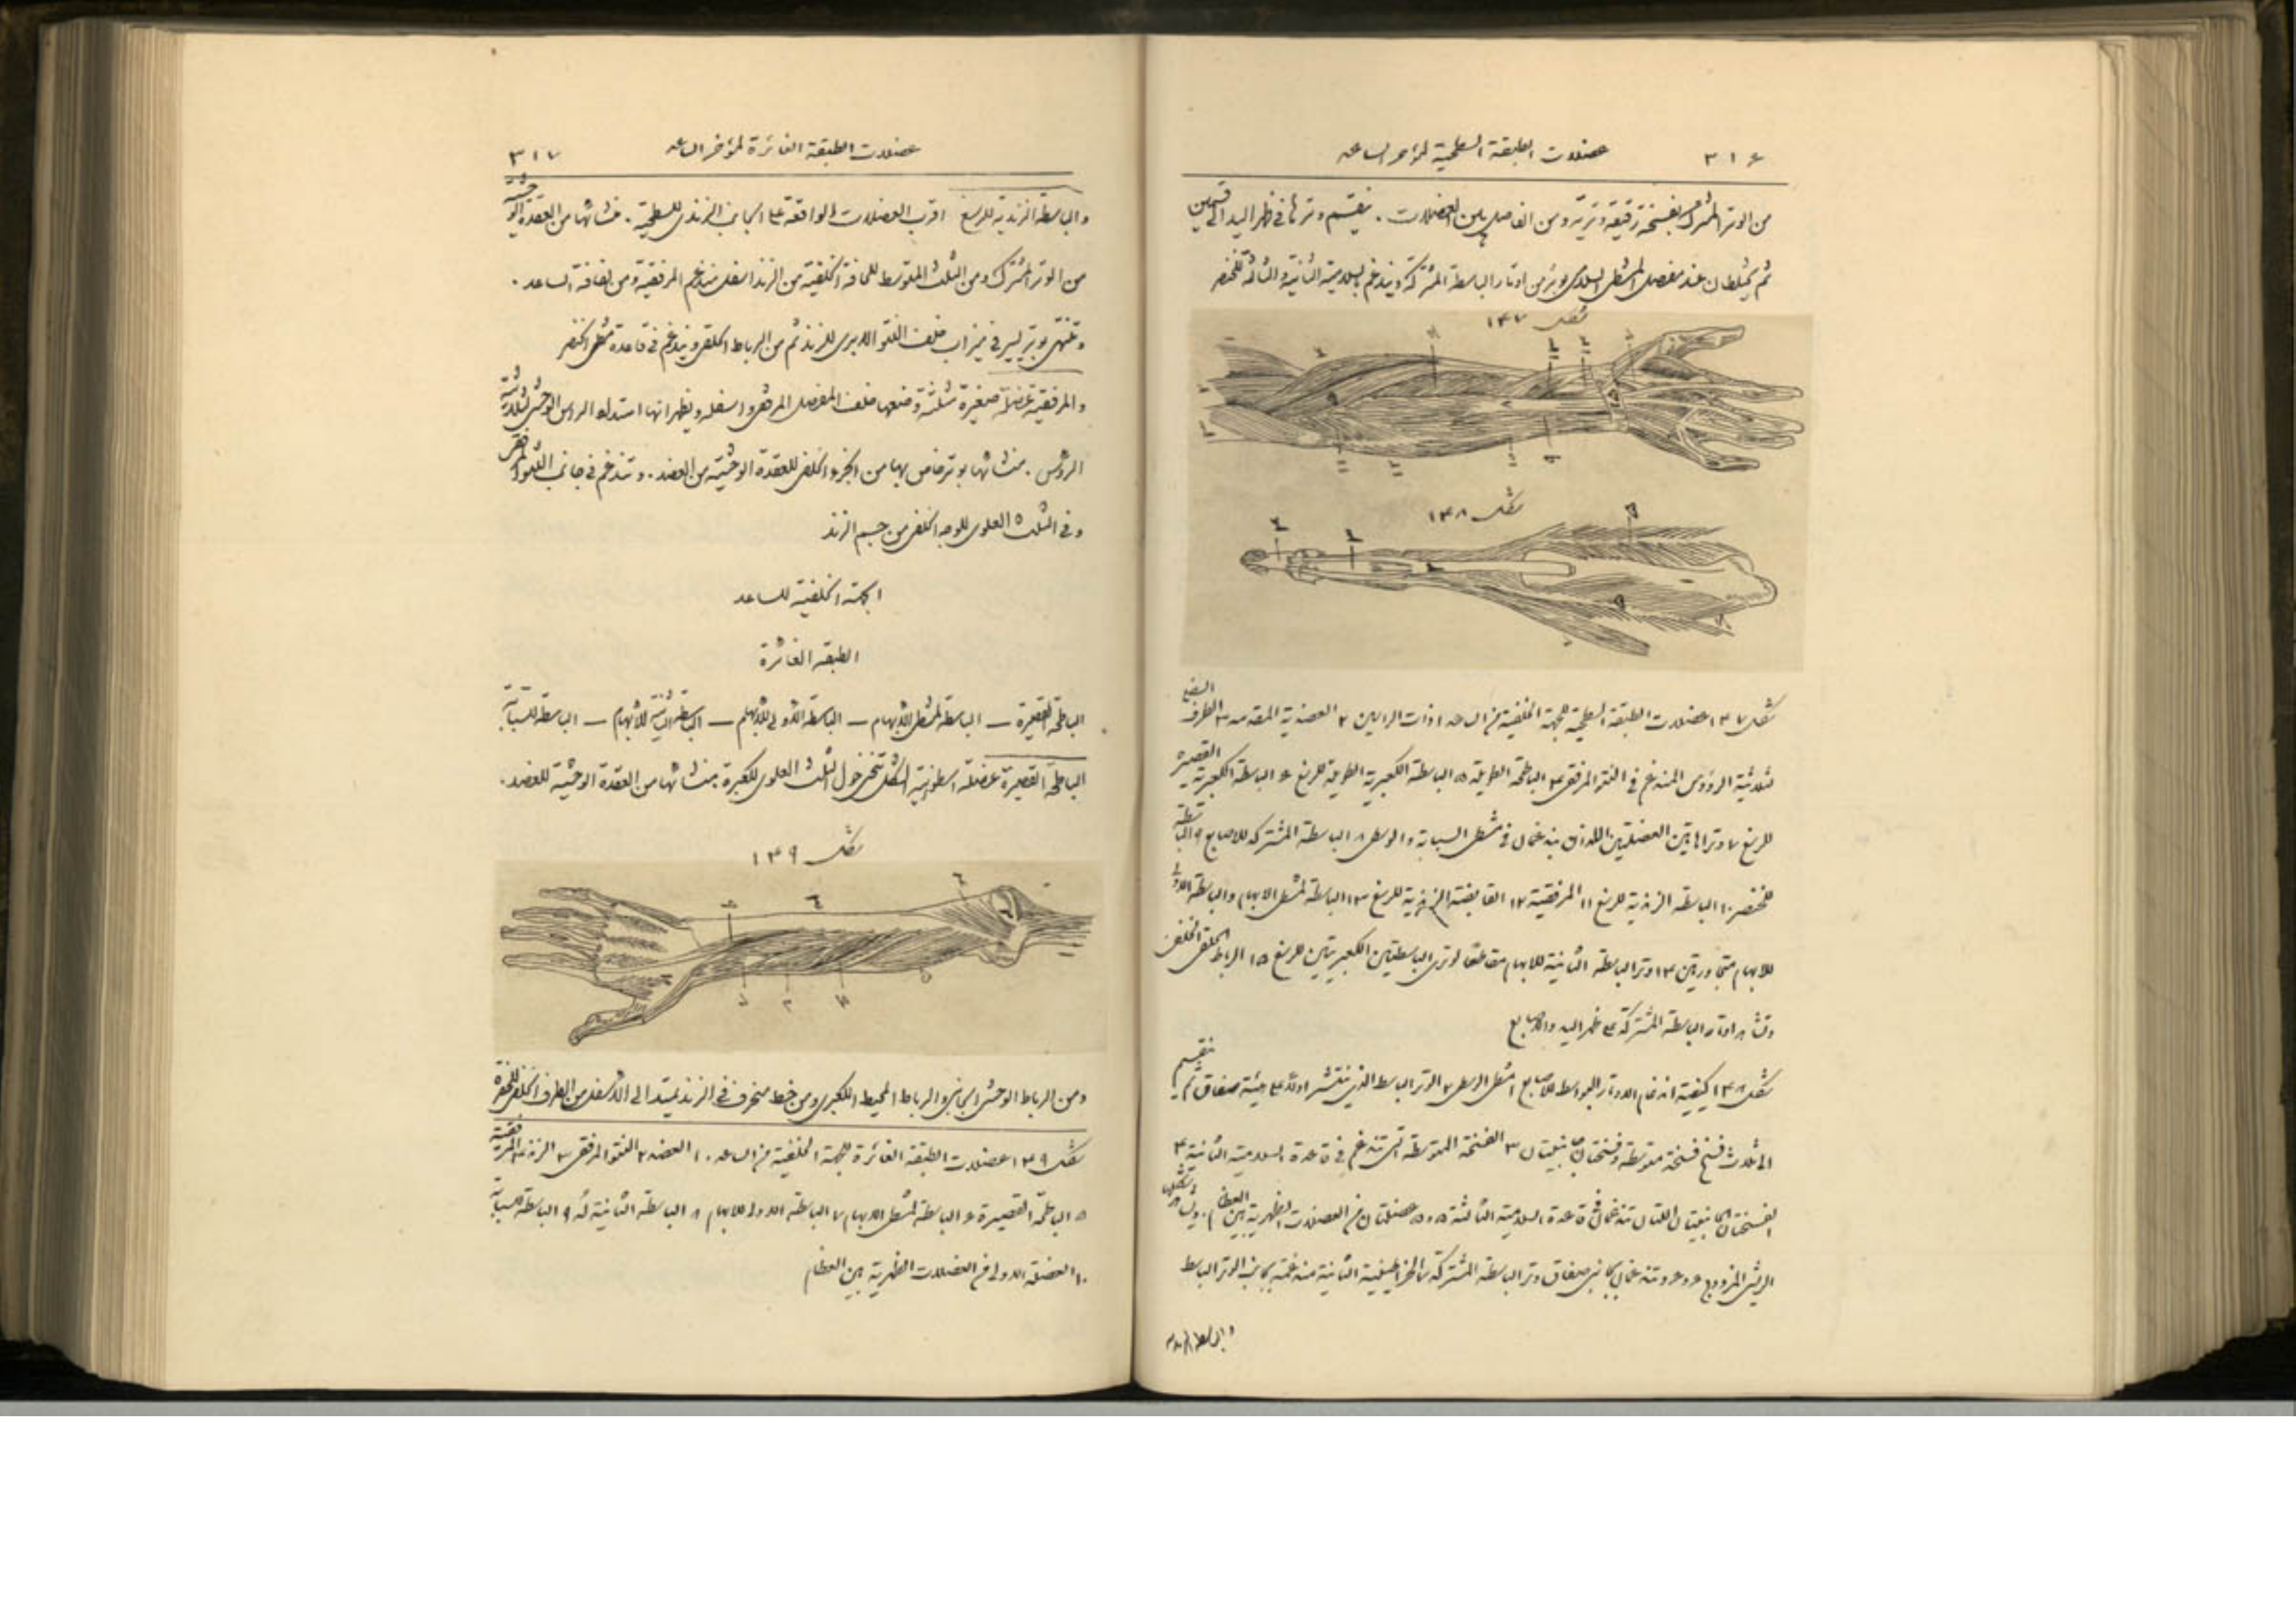 ٣١٦ عضلات الطبقة السطحية لمؤخر الساعد
من الوتر المشترك بفسخة رقيقة وترية ومن الفاصل بين العضلات . ينقسم وترها في ظهر اليد الى قسمين
ثم يختلطان عند مفصل المشطى السلامى بوتر من اوتار الباسطة المشتركة ويندغم بالسلامية الثانية والثالثة للخنصر
شكل ١٤٧
شكل ١٤٨
شكل ١٤٧ عضلات الطبقة السطحية للجهة الخلفية من الساعد ١ ذات الراسين ٢ العضدية المقدمه ٣ الطرف السفلى
لثلاثية الرؤوس المندغم فى النتو المرفقى ٤ الباطحة الطويلة ٥ الباسطة الكعبرية الطويلة للرسغ ٦ الباسطة الكعبرية القصيرة
للرسغ ٧ وترا هاتين العضلتين اللذان يندغمان في مشطى السبابة والوسطى ٨ الباسطة المشتركة للاصابع ٩ الباسطة
للخنصر ١٠ الباسطه الزندية للرسغ ١١ المرفقية ١٢ القابضة الزندية للرسغ ١٣ الباسطة لمشطى الابهام والباسطة الاولى
للابهام متجاورتين ١٤ وتر الباسطه الثانية للابهام مقاطعًا لوترى الباسطتين الكعبريتين للرسغ ١٥ الرباط الحلقى الخلفى
اوتار الباسطه المشتركة على ظهر اليد والاصابع
شكل ١٤٨ كيفية اندغام الاوتار البواسط للاصابع ١ مشطى الوسطى ٢ الوتر الباسط الذى ينتشر اولًا على هيئة صفاق ثم ينقسم
الى ثلاث فسخ فسخة متوسطة وفسختان جانبيتان ٣ الفسخة المتوسطة التى تندغم فى قاعدة السلامية الثانية ٤
الفسختان الجانبيتان اللتان تندغمان فى قاعدة السلامية الثالثة ٥ و ٥ عضلتان من العضلات الظهرية بين العظام
الريشى المزدوج ٦ و ٦ وتندغمان بجانبى صفاق وتر الباسطة المشتركة الثانية مندغمة بجانب الوتر الباسط
والباسطة الزندية
عضلات الطبقة الغائرة لمؤخر الساعد ٣١٧
والباسطة الزندية للرسغ اقرب العضلات الواقعة على الجانب الزندى للسطحية . منشائها من العقدة الوحشية
من الوتر المشترك ومن الثلث المتوسط للحافة الخلفية من الزند اسفل مندغم المرفقية ومن لفافة الساعد .
وتنتهى بوتر يسير في ميزاب خلف النتو الابرى للزند ثم من الرباط الحلقى ويندغم فى قاعدة مشطى الخنصر
والمرفقية عضلة صغيرة مثلثة وضعها خلف المفصل المرفقى واسفله ويظهر انها استداد الراس الوحشى لثلاثية
الرؤس . منشائها بوتر خاص بها من الجزء الخلفى للعقدة الوحشية من العضد . وتندغم فى جانب النتو المرفقى
وفى الثلث العلوى للوجه الخلفى من جسم الزند
الجهة الخلفية للساعد
الطبقه الغائرة
الباطحة القصيرة — الباسطة لمشطى الابهام — الباسطة الاولى للابهام — الباسطة الثانية للابهام — الباسطة للسبابة
الباطحة القصيرة عضلة اسطوانية الشكل تنحنى حول الثلث العلوى للكعبرة منشائها من العقدة الوحشية للعضد .
شكل ١٤٩
ومن الرباط الوحشى الجانبى والرباط المحيط الكعبرى ومن خط منحرف فى الزند يمتد الى الاسفل من الطرف الخلفى للحفرة
شكل ١٤٩ عضلات الطبقة الغائرة للجهة الخلفية من الساعد . ١ العضد ٢ النتو المرفقى ٣ الزند ٤ المرفقية
٥ الباطحة القصيرة ٦ الباسطة لمشطى الابهام ٧ الباسطة الاولى للابهام ٨ الباسطة الثانية له ٩ الباسطة للسبابة
١٠ العضلة الاولى من العضلات الظهرية بين العظام